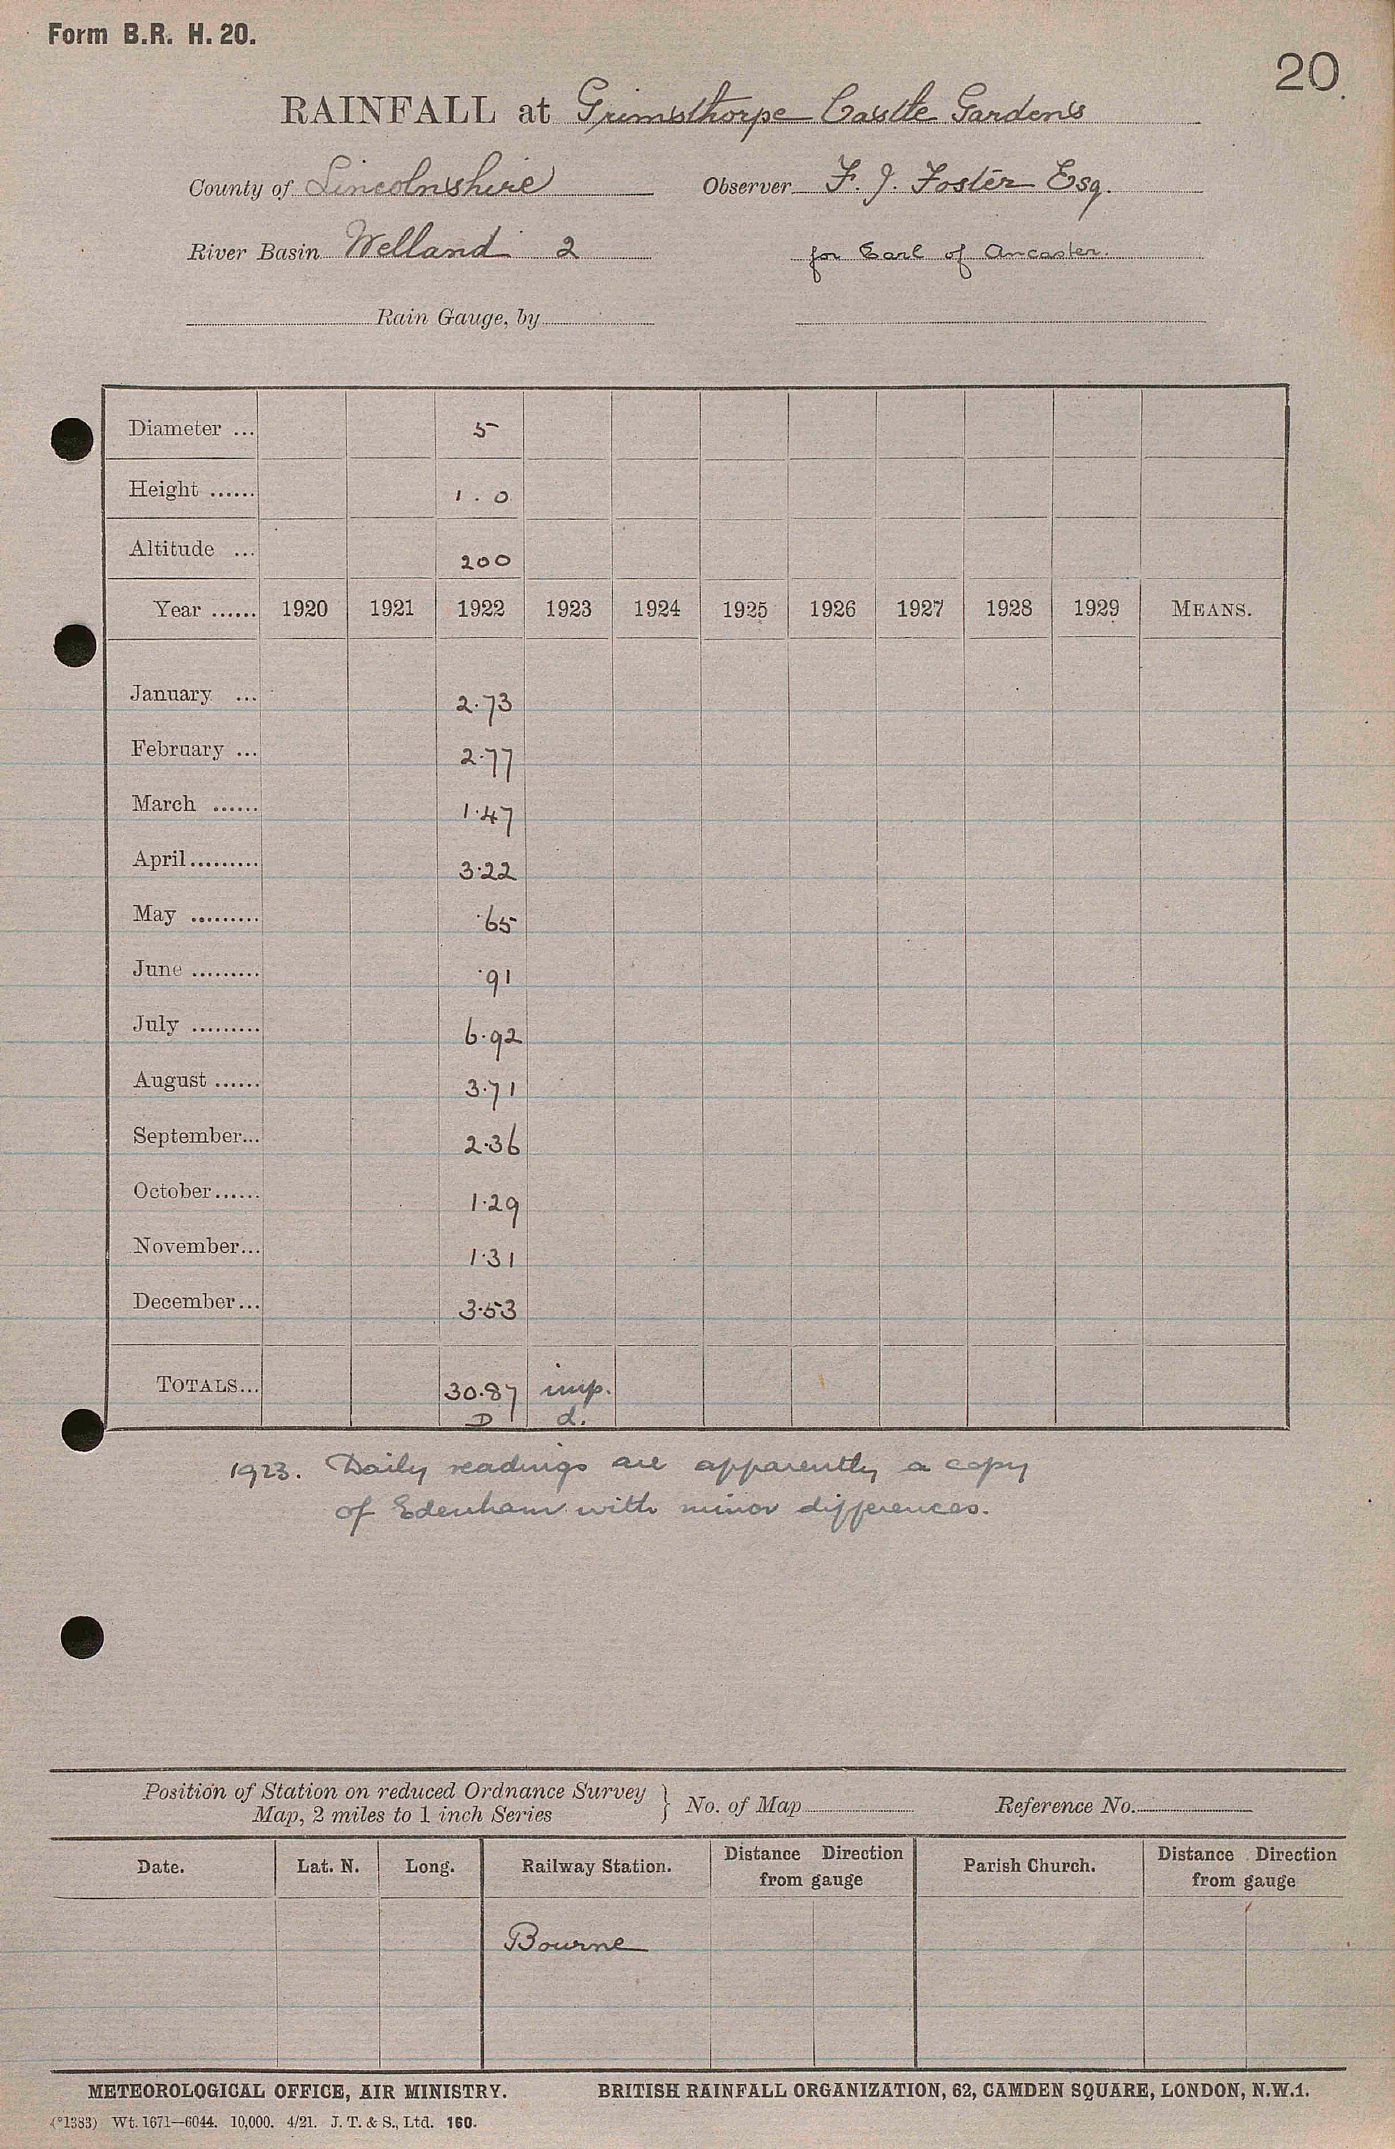 Form B.R. H. 20.
20.
RAINFALL at Grimsthorpe Castle Gardens
County of Lincolnshire Observer F. J. Foster Esq.
River Basin Welland 2 for Earl of Ancaster.
Rain Gauge, by
Diameter ... 5
Height ...... 1.0
Altitude ... 200
Year ...... 1920 1921 1922 1923 1924 1925 1926 1927 1928 1929 MEANS.
January ... 2.73
February ... 2.77
March ...... 1.47
April ......... 3.22
May ......... .65
June ......... .91
July ......... 6.92
August ...... 3.71
September... 2.36
October ...... 1.29
November... 1.31
December... 3.53
TOTALS... 30.87 imp.
D d.
1923. Daily readings are apparently a copy
of Edenham with minor differences.
Position of Station on reduced Ordnance Survey
Map, 2 miles to 1 inch Series } No. of Map Reference No.
Date. Lat. N. Long. Railway Station. Distance Direction from gauge Parish Church. Distance Direction from gauge
Bourne
METEOROLOGICAL OFFICE, AIR MINISTRY. BRITISH RAINFALL ORGANIZATION, 62, CAMDEN SQUARE, LONDON, N.W.1.
(*1383) Wt. 1671—6044. 10,000. 4/21. J. T. & S., Ltd. 160.